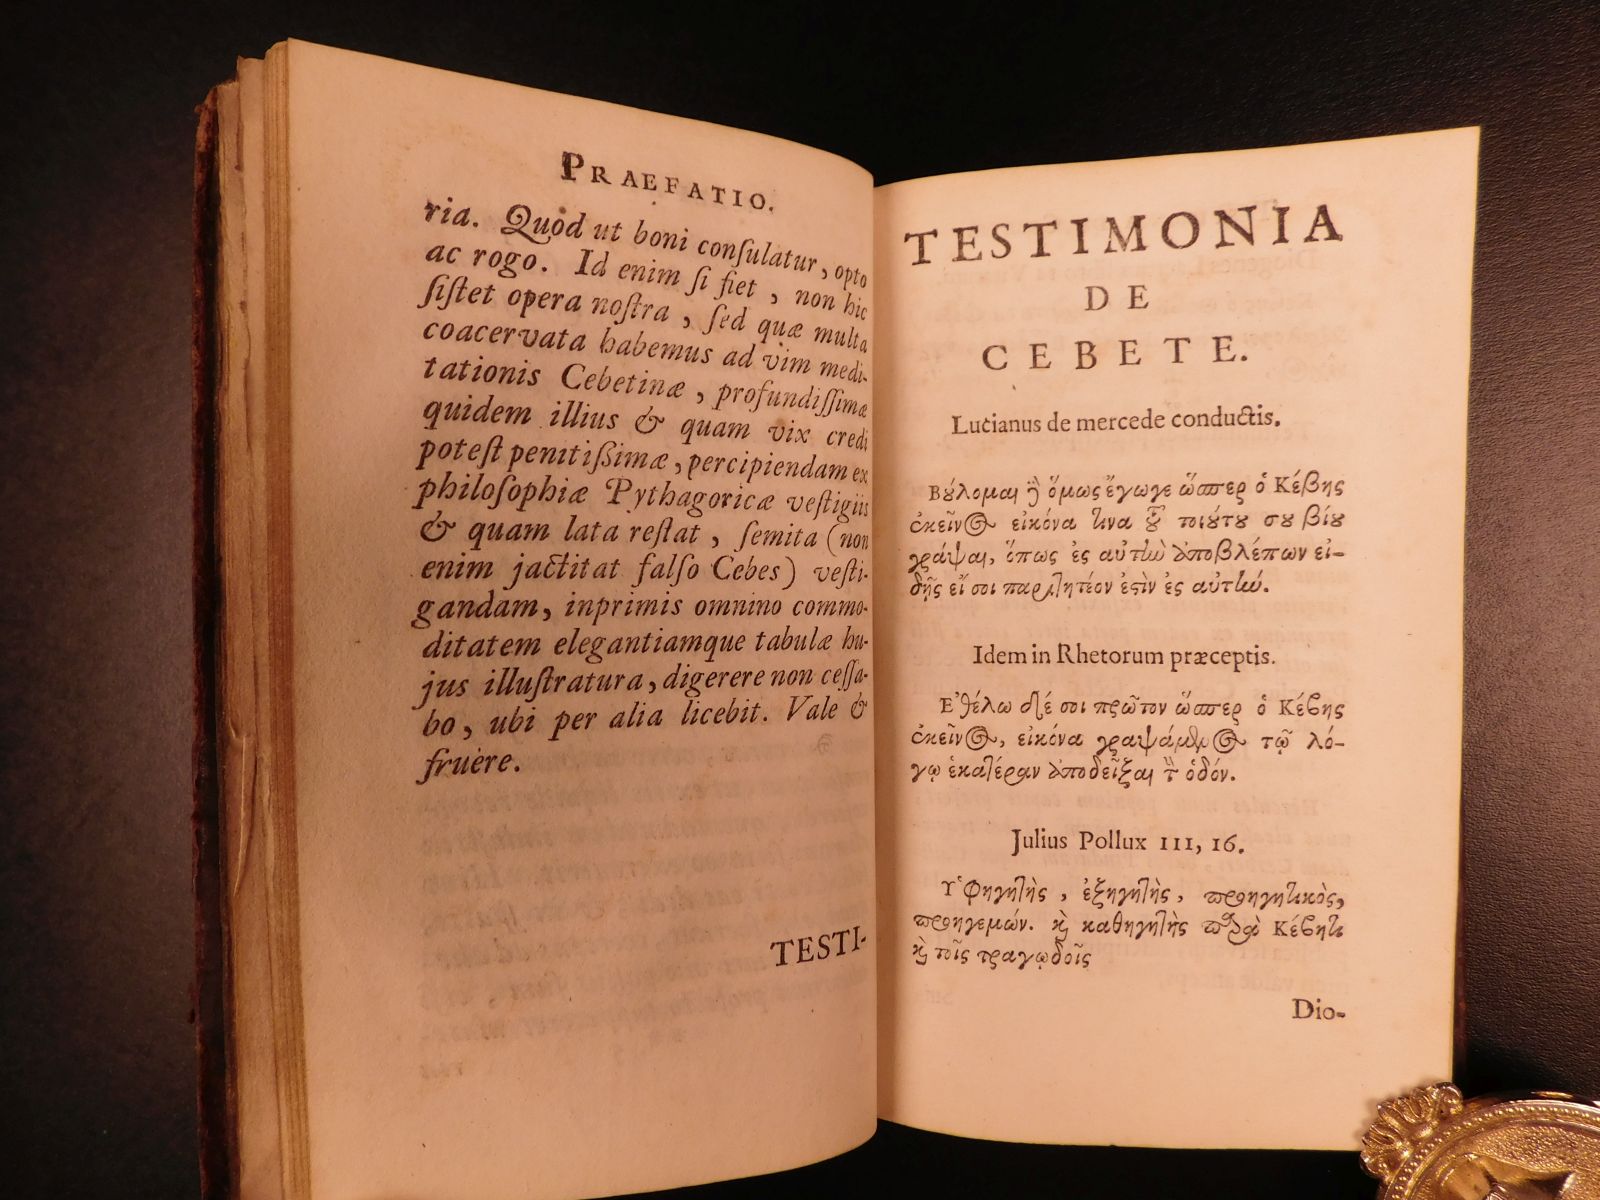 PRAEFATIO.
ria. Quod ut boni conſulatur, opto
ac rogo. Id enim ſi fiet, non hic
ſiſtet opera noſtra, ſed quæ multa
coacervata habemus ad vim medi-
tationis Cebetinæ, profundiſſimæ
quidem illius & quam vix credi
poteſt penitiſſimæ, percipiendam ex
philoſophiæ Pythagoricæ veſtigiis
& quam lata reſtat, ſemita (non
enim jactitat falſo Cebes) veſti-
gandam, inprimis omnino commo-
ditatem elegantiamque tabulæ hu-
jus illuſtratura, digerere non ceſſa-
bo, ubi per alia licebit. Vale &
fruere.
TESTI-
TESTIMONIA
DE
CEBETE.
Lucianus de mercede conductis.
Βούλομαι δ' ὅμως ἔγωγε ὥσπερ ὁ Κέβης
ἐκεῖνος εἰκόνα τινὰ τοῦ τοιούτου σου βίου
γράψαι, ὅπως ἐς αὐτὴν ἀποβλέπων εἰ-
δῇς εἴ σοι παριτητέον ἐστὶν ἐς αὐτήν.
Idem in Rhetorum præceptis.
Ἐθέλω δέ σοι πρῶτον ὥσπερ ὁ Κέβης
ἐκεῖνος, εἰκόνα γραψάμενος τῷ λό-
γῳ ἑκατέραν ἀποδεῖξαι τὴν ὁδόν.
Julius Pollux III, 16.
Ὑφηγητὴς, ἐξηγητὴς, προηγητικὸς,
προηγεμών. καὶ καθηγητὴς παρὰ Κέβητι
καὶ τοῖς τραγῳδοῖς
Dio-